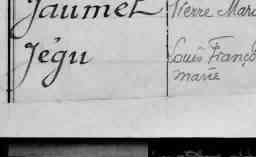 Jaumet Pierre Mari
Jégu Louis Franço
marie